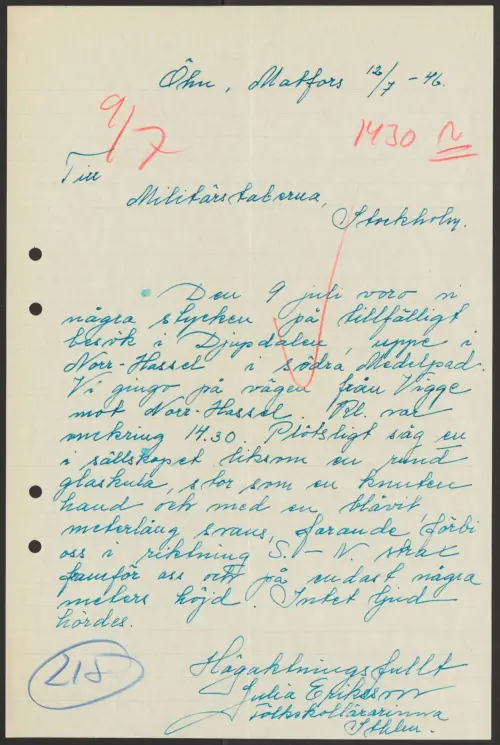 Öhn, Matfors 12/7 -46.
9/7
1430 N
Till
Militärstaberna,
Stockholm.
Den 9 juli voro vi
några stycken på tillfälligt
besök i Djupdalen, uppe i
Norr-Hassel i södra Medelpad.
Vi gingo på vägen från Vigge
mot Norr-Hassel. Kl. var
omkring 14.30. Plötsligt såg en
i sällskapet liksom en rund
glaskula, stor som en knuten
hand och med en blåvit
meterlång svans, farande förbi
oss i riktning S. - N. strax
framför oss och på endast några
meters höjd. Intet ljud
hördes.
Högaktningsfullt
Julia Eriksson
Folkskollärarinna
Sthlm.
218